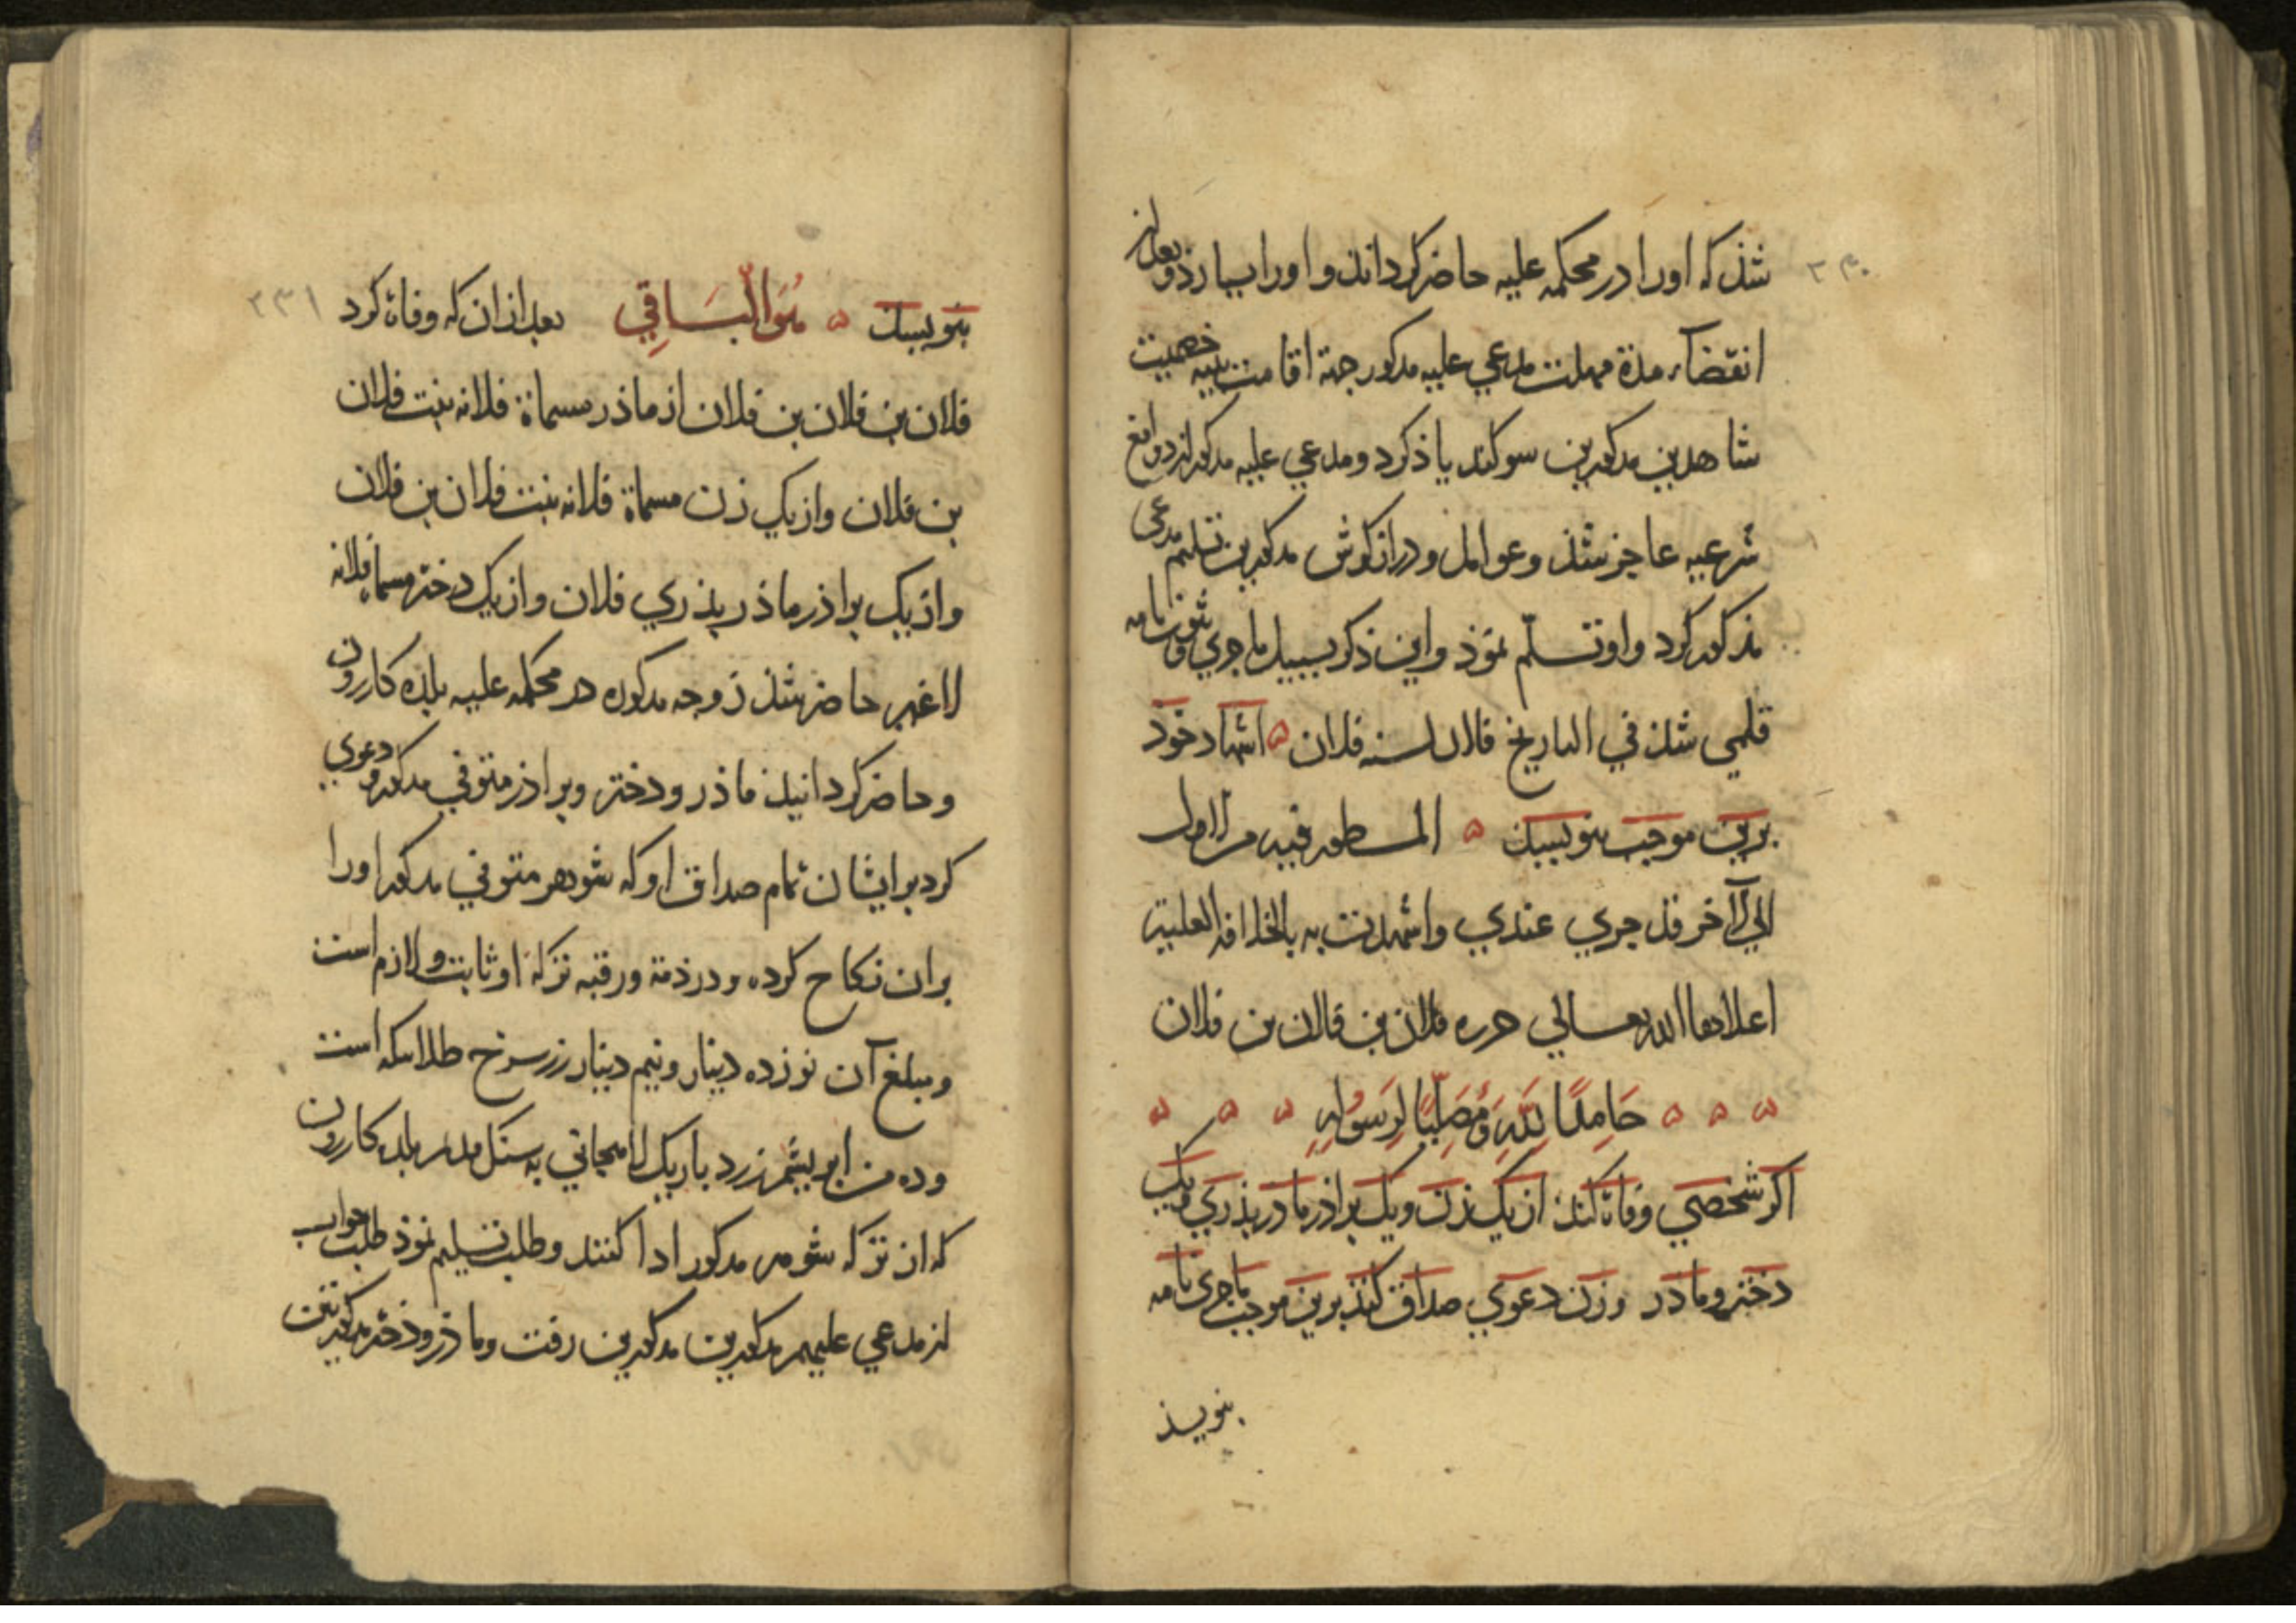 ٢٣٠
شذ که اورا در محکمه علیه حاضر کردانذ و اورا بیارذ و بعد از
انقضاء مدة مهلت مدعی علیه مذکور جهة اقامت بینه خصمیت
شاهدین مذکورین سوکند یاذ کرد و مدعی علیه مذکور از دوافع
شرعیه عاجز شذ و عوامل و درازکوش مذکورین تسلیم مدعی
مذکور کرد و او تسلّم نموذ و این ذکر بسبیل ماجری و ثبوت نامه
قلمی شذ في التاریخ فلان لسنه فلان ه اشهاد خوذ
برین موجب بنویسند ه المسطور فیه من الاول
الي الآخر قد جري عندي واشهدت به بالخلافة العلیة
اعلاها الله تعالي حرره فلان بن فلان بن فلان
ه ه ه حَامِدًا لِلَّهِ وَمُصَلِّيًا لِرَسُولِهِ ه ه ه
اکر شخصی وفاة کند از یک زن و یک براذر ماذر پذري و یک
دختر و ماذر و زن دعوي صداق کند برین موجب ماجری نامه
بنویسذ
٢٣١
بنویسند ه هُوَ الْبَاقِي بعد از ان که وفاة کرد
فلان بن فلان بن فلان از ماذر مسماة فلانه بنت فلان
بن فلان و از یک زن مسماة فلانه بنت فلان بن فلان
و از یک براذر ماذر پذري فلان و از یک دختر مسماة فلانه
لا غیر حاضر شذ زوجه مذکوره در محکمه علیه بلذه کازرون
و حاضر کردانیذ ماذر و دختر و براذر متوفي مذکور و دعوي
کرد بر ایشان تمام صداق او که شوهر متوفي مذکور اورا
بران نکاح کرده و در ذمة و رقبه ترکهٔ او ثابت و لازم است
و مبلغ آن نوزده دینار و نیم دینار زر سرخ طلا سکه است
و ده من ابریشم زرد باریک لاهیجاني به سنک بلده کازرون
که از ترکه شوهر مذکور ادا کنند و طلب تسلیم نموذ طلب جواب
از مدعي علیهم مذکورین مذکورین رفت و ماذر و دختر مذکورتین